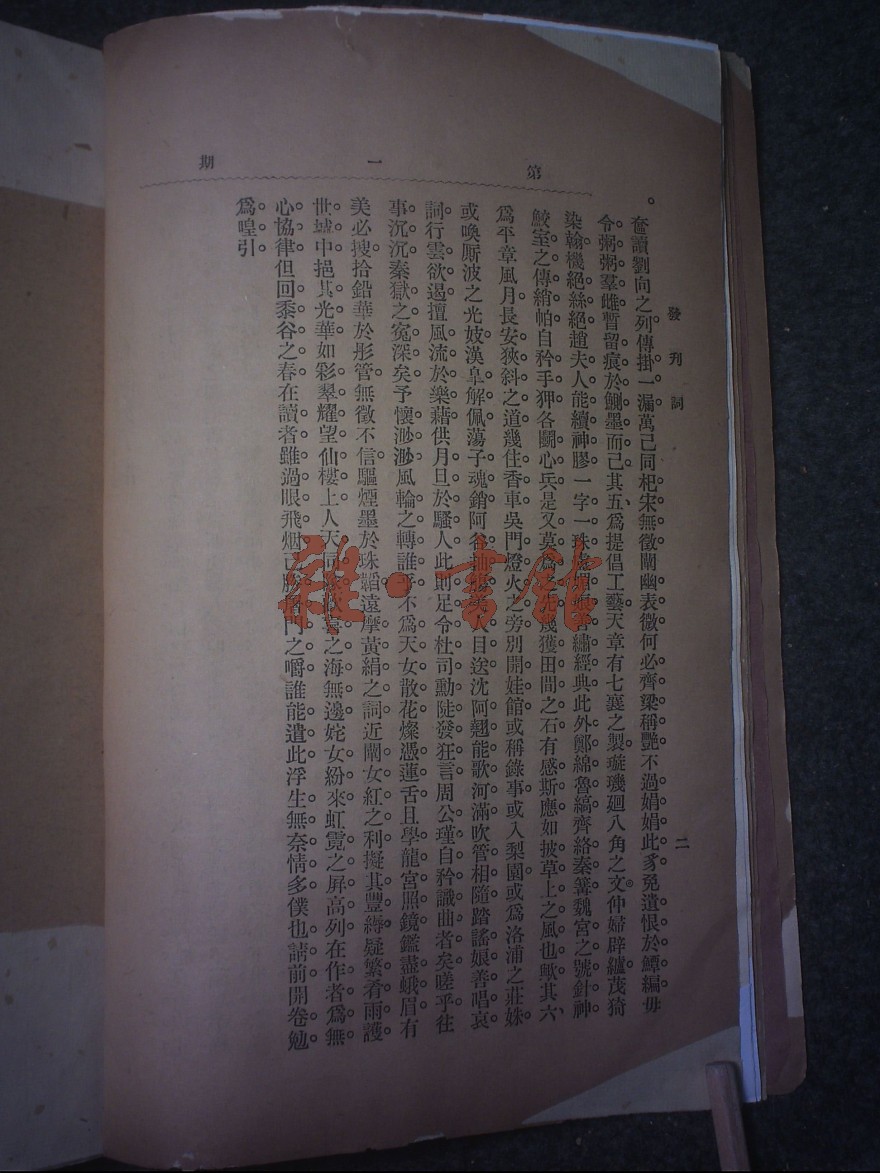 第一期
發刊詞
二
奮讀劉向之列傳掛一漏萬己同杞宋無徵闡幽表微何必齊梁稱艷不過娟娟此豸免遺恨於蟫編毋
令粥粥羣雌暫留痕於鰂墨而己其五爲提倡工藝天章有七襄之製璇璣廻八角之文仲婦辟纑茂猗
染翰機絕絲絕趙夫人能續神膠一字一珠盧媚娘善繡經典此外鄭綿魯縞齊絡秦篝魏宮之號針神
鮫室之傳綃帕自矜手狎各鬭心兵是又莫爲之先幾獲田間之石有感斯應如披草上之風也歟其六
爲平章風月長安狹斜之道幾住香車吳門燈火之旁別開娃館或稱錄事或入梨園或爲洛浦之莊姝
或喚厮波之光妓漢皐解佩蕩子魂銷阿谷抽觴美人目送沈阿翹能歌河滿吹管相隨踏謠娘善唱哀
詞行雲欲遏擅風流於樂藉供月旦於騷人此則足令杜司勳陡發狂言周公瑾自矜識曲者矣嗟乎往
事沉沉秦獄之寃深矣予懷渺渺風輪之轉誰乎不爲天女散花燦憑蓮舌且學龍宮照鏡鑑盡蛾眉有
美必搜拾鉛華於彤管無徵不信驅煙墨於珠韜遠摩黃絹之詞近闡女紅之利擬其豐縟疑繁肴雨護
世城中挹其光華如彩翠耀望仙樓上人天同之海無邊姹女紛來虹霓之屏高列在作者爲無
心協律但回黍谷之春在讀者雖過眼飛烟己勝屠門之嚼誰能遣此浮生無奈情多僕也請前開卷勉
爲喤引
雜·書館